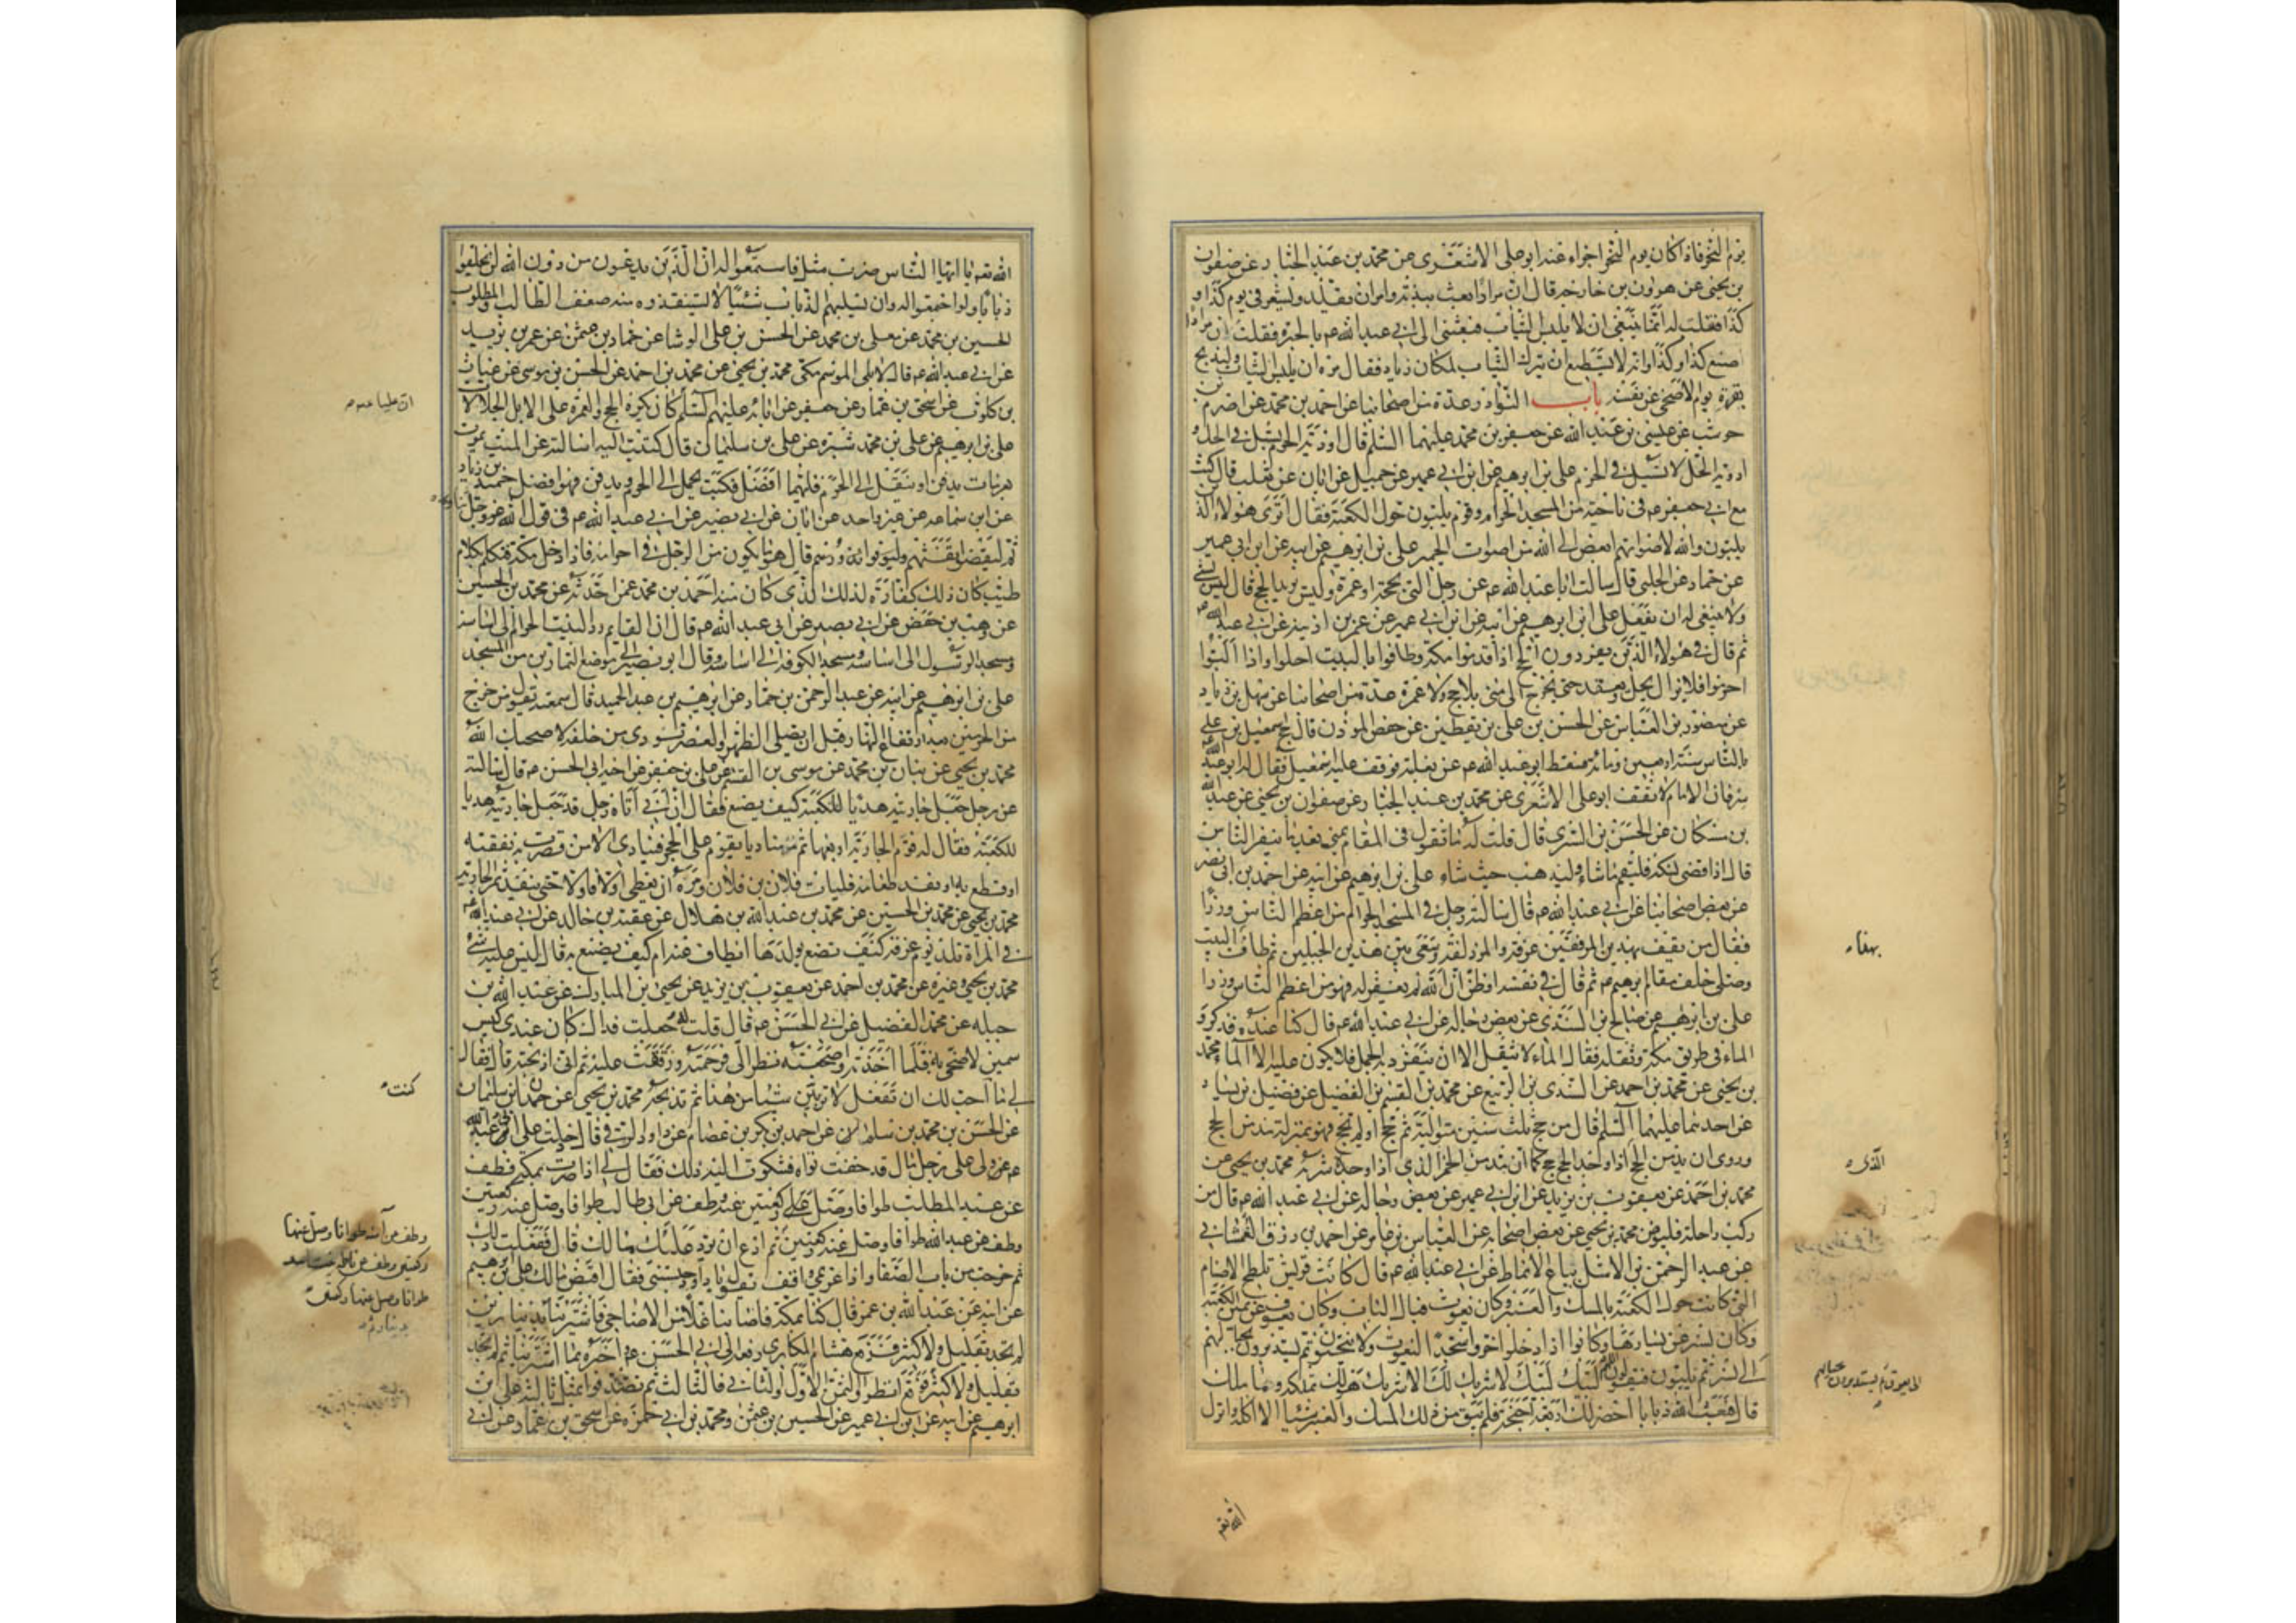 يوم النحر فاذا كان يوم النحر اجزاء عنه ابو علي الاشعري عن محمد بن عبد الجبار عن صفوان
بن يحيى عن هرون بن خارجه قال ان مرادا بعث ببدنة وامر ان تقلد وتشعر في يوم كذا و
كذا فقلت له انما ينبغي ان لا يلبس الثياب فبعثني الى ابي عبد الله ع بالحيرة فقلت ان مرادا
صنع كذا وكذا وانه لا يستطيع ان يترك الثياب لمكان زياد فقال مره ان يلبس الثياب وليذبح
بقرة يوم الاضحى عن نفسه باب النوادر عدة من اصحابنا عن احمد بن محمد عن اصرم بن
حوشب عن عيسى بن عبد الله عن جعفر بن محمد عليهما السلم قال اودية الحرم تسيل في الحل و
اودية الحل لا تسيل في الحرم علي بن ابرهيم عن ابن ابي عمير عن جميل عن ابان عن تغلب قال كنت
مع ابي جعفر ع في ناحية من المسجد الحرام وقوم يلبون حول الكعبة فقال اترى هولاء الذين
يلبون والله لاصواتهم ابغض الى الله من اصوات الحمير علي بن ابرهيم عن ابيه عن ابن ابي عمير
عن حماد عن الحلبي قال سالت ابا عبد الله ع عن رجل لبى بحجة او عمرة وليس يريد الحج قال ليس بشيء
ولا ينبغي له ان يفعل علي ابن ابرهيم عن ابيه عن ابن ابي عمير عن عمر بن اذينه عن ابي عبد الله ع
قال في هولاء الذين يفردون الحج اذا قدموا مكة وطافوا بالبيت احلوا واذا لبوا
احرموا فلا يزال يحل ويعقد حتى يخرج الى منى بلا حج ولا عمرة عدة من اصحابنا عن سهل بن زياد
عن منصور بن العباس عن الحسن بن علي بن يقطين عن حفص الموذن قال حج اسمعيل بن علي
بالناس سنة اربعين ومائة فسقط ابو عبد الله ع عن بغلته فوقف عليه اسمعيل فقال له ابو عبد الله ع
سر فان الامام لا يقف ابو علي الاشعري عن محمد بن عبد الجبار عن صفوان بن يحيى عن عبد الله
بن مسكان عن الحسن بن السري قال قلت له ما تقول في المقام بمنى بعد ما ينفر الناس
قال اذا قضى نسكه فليقم ما شاء وليذهب حيث شاء علي بن ابرهيم عن ابيه عن احمد بن ابي نصر
عن بعض اصحابنا عن ابي عبد الله ع قال ساله رجل في المسجد الحرام من اعظم الناس وزرا
فقال من يقف بهذين الموقفين عرفة والمزدلفة وسعى بين هذين الجبلين ثم طاف بالبيت
وصلى خلف مقام ابرهيم ع ثم قال في نفسه او ظن ان الله لم يغفر له فهو من اعظم الناس وزرا
علي بن ابرهيم عن صالح بن السندي عن بعض رجاله عن ابي عبد الله ع قال كنا عنده فذكروا
الماء في طريق مكة وثقله فقال الماء لا يثقل الا ان ينفرد به الجمل فلا يكون عليه الا الماء محمد
بن يحيى عن محمد بن احمد عن السندي بن الربيع عن محمد بن القسم بن الفضيل عن فضيل بن يسار
عن احدهما عليهما السلم قال من حج ثلث سنين متوالية ثم حج او لم يحج فهو بمنزلة مدمن الحج
وروى ان مدمن الحج اذا وجد الحج حج كما ان مدمن الخمر الذي اذا وجده شربه محمد بن يحيى عن
محمد بن احمد عن يعقوب بن يزيد عن ابن ابي عمير عن بعض رجاله عن ابي عبد الله ع قال من
ركب راحلة فليوص محمد بن يحيى عن بعض اصحابه عن العباس بن عامر عن احمد بن رزق الغمشاني
عن عبد الرحمن بن الاشل بياع الانماط عن ابي عبد الله ع قال كانت قريش تلطخ الاصنام
التي كانت حول الكعبة بالمسك والعنبر وكان يغوث قبال الباب وكان يعوق عن يمين الكعبة
وكان نسر عن يسارها وكانوا اذا دخلوا خروا سجدا ليغوث ولا ينحنون ثم يستديرون بحيالهم
الى نسر ثم يلبون فيقولون اللهم لبيك لبيك لا شريك لك الا شريك هو لك تملكه وما ملك
قال فبعث الله ذبابا اخضر له اربعة اجنحة فلم يبق من ذلك المسك والعنبر شيئا الا اكله وانزل
بهذا
الذي
الى يعوق ثم يستديرون بحيالهم
الله تعم
الله تعم يا ايها الناس ضرب مثل فاستمعوا له ان الذين تدعون من دون الله لن يخلقوا
ذبابا ولو اجتمعوا له وان يسلبهم الذباب شيئا لا يستنقذوه منه ضعف الطالب والمطلوب
الحسين بن محمد عن معلى بن محمد عن الحسن بن علي الوشا عن حماد بن عثمن عن عمر بن يزيد
عن ابي عبد الله ع قال لا يلي الموسم مكي محمد بن يحيى عن محمد بن احمد عن الحسن بن موسى عن غياث
بن كلوب عن اسحق بن عمار عن جعفر عن ابائه عليهم السلم كان يكره الحج والعمرة على الابل الجلالات
علي بن ابرهيم عن علي بن محمد شيره عن علي بن سليمان قال كتبت اليه اساله عن الميت يموت
بعرفات يدفن او ينقل الى الحرم فايهما افضل فكتب يحمل الى الحرم ويدفن فهو افضل حميد بن زياد
عن ابن سماعه عن غير واحد عن ابان عن ابي بصير عن ابي عبد الله ع في قول الله عز وجل
ثم ليقضوا تفثهم وليوفوا نذورهم قال هو ما يكون من الرجل في احرامه فاذا دخل مكة فتكلم بكلام
طيب كان ذلك كفارة لذلك الذي كان منه احمد بن محمد عمن حدثه عن محمد بن الحسين
عن وهيب بن حفص عن ابي بصير عن ابي عبد الله ع قال ان القايم رد البيت الحرام الى اساسه
ومسجد الرسول الى اساسه ومسجد الكوفة الى اساسه وقال ابو بصير الى موضع التمارين من المسجد
علي بن ابرهيم عن ابيه عن عبد الرحمن بن حماد عن ابرهيم بن عبد الحميد قال سمعته يقول من خرج
من الحرمين بعد ارتفاع النهار قبل ان يصلي الظهر والعصر نودي من خلفه لا صحبك الله
محمد بن يحيى عن بنان بن محمد عن موسى بن القسم عن علي بن جعفر عن اخيه ابي الحسن ع قال سالته
عن رجل جعل جاريته هديا للكعبة كيف يصنع فقال ان ابي اتاه رجل قد جعل جاريته هديا
للكعبة فقال له قوم الجارية او بعها ثم مر مناديا يقوم على الحجر فينادي الا من قصرت به نفقته
او قطع به او نفد طعامه فليات فلان بن فلان ومره ان يعطي اولا فاولا حتى ينفد ثمن الجارية
محمد بن يحيى عن محمد بن الحسين عن محمد بن عبد الله بن هلال عن عقبة بن خالد عن ابي عبد الله ع
في امراة تلد يوم عرفة كيف تصنع بولدها ايطاف عنه ام كيف يصنع به قال ليس عليه شيء
محمد بن يحيى وغيره عن محمد بن احمد عن يعقوب بن يزيد عن يحيى بن المبارك عن عبد الله بن
جبله عن محمد الفضيل عن ابي الحسن ع قال قلت له جعلت فداك كان عندي كبش
سمين لاضحي به فلما اخذته واضجعته نظر الي فرحمته ورققت عليه ثم اني ذبحته قال فقال
لي ما احب لك ان تفعل لا تربين شيئا من هذا ثم تذبحه محمد بن يحيى عن حمدان بن سليمان
عن الحسن بن محمد بن سلام عن احمد بن بكر بن عصام عن داود الرقي قال دخلت على ابي عبد الله
ع ولي على رجل مال قد خفت تواه فشكوت اليه ذلك فقال لي اذا صرت بمكة فطف
عن عبد المطلب طوافا وصل ركعتين عنه وطف عن ابي طالب طوافا وصل عنه ركعتين
وطف عن عبد الله طوافا وصل عنه ركعتين ثم ادع ان يرد عليك مالك قال ففعلت ذلك
ثم خرجت من باب الصفا واذا غريمي واقف يقول يا داود حبستني تعال اقبض مالك علي بن ابرهيم
عن ابيه عن عبد الله بن عمر قال كنا بمكة فاصابنا غلاء من الاضاحي فاشترينا بدينار ثم بدينارين
لم نجد بقليل ولا كثير فرقع هشام المكاري رقعة الى ابي الحسن ع اخبره بما اشترينا ثم لم نجد
بقليل ولا كثير فوقع انظروا الثمن الاول والثاني والثالث ثم تصدقوا بمثل ثلثه علي بن
ابرهيم عن ابيه عن ابن ابي عمير عن الحسين بن عثمن ومحمد بن ابي حمزه عن اسحق بن عمار عن ابي
ان عليا ع
كنت
وطف عن آمنه طوافا وصل عنها
ركعتين وطف عن فاطمه بنت اسد
طوافا وصل عنها ركعتين